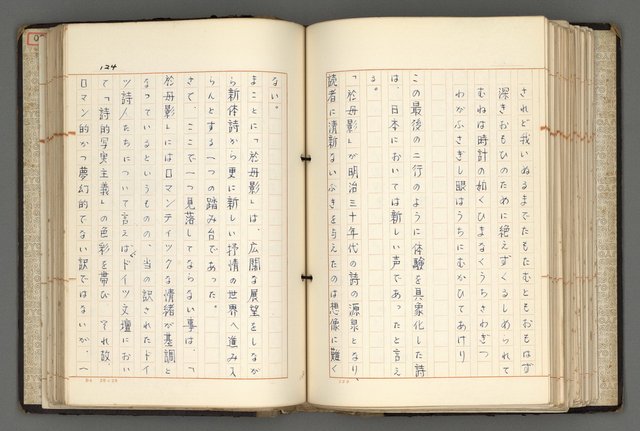 されど我いぬるまでたむともおもはず
深きおもひのために絶えずくるしめられて
むねは時計の如くひまなくうちさわぎつ
わがふさぎし眼はうちにむかひてあけり
この最後の二行のように体験を具象化した詩
は、日本においては新しい声であったと言え
る。
「於母影」が明治三十年代の詩の源泉となり、
読者に清新ないぶきを与えたのは想像に難く
124
ない。
まことに「於母影」は、広闊な展望をしなが
ら新体詩から更に新しい抒情の世界へ進み入
らんとする一つの踏み台であった。
さて、ここで一つ見落してならない事は、「
於母影」にはロマンティックな情緒が基調と
なっているというものの、当の訳されたドイ
ツ詩人たちについて言えば、ドイツ文壇におい
て「詩的写実主義」の色彩を帯び それ故、
ロマン的かつ夢幻的でない訳ではないが、へ